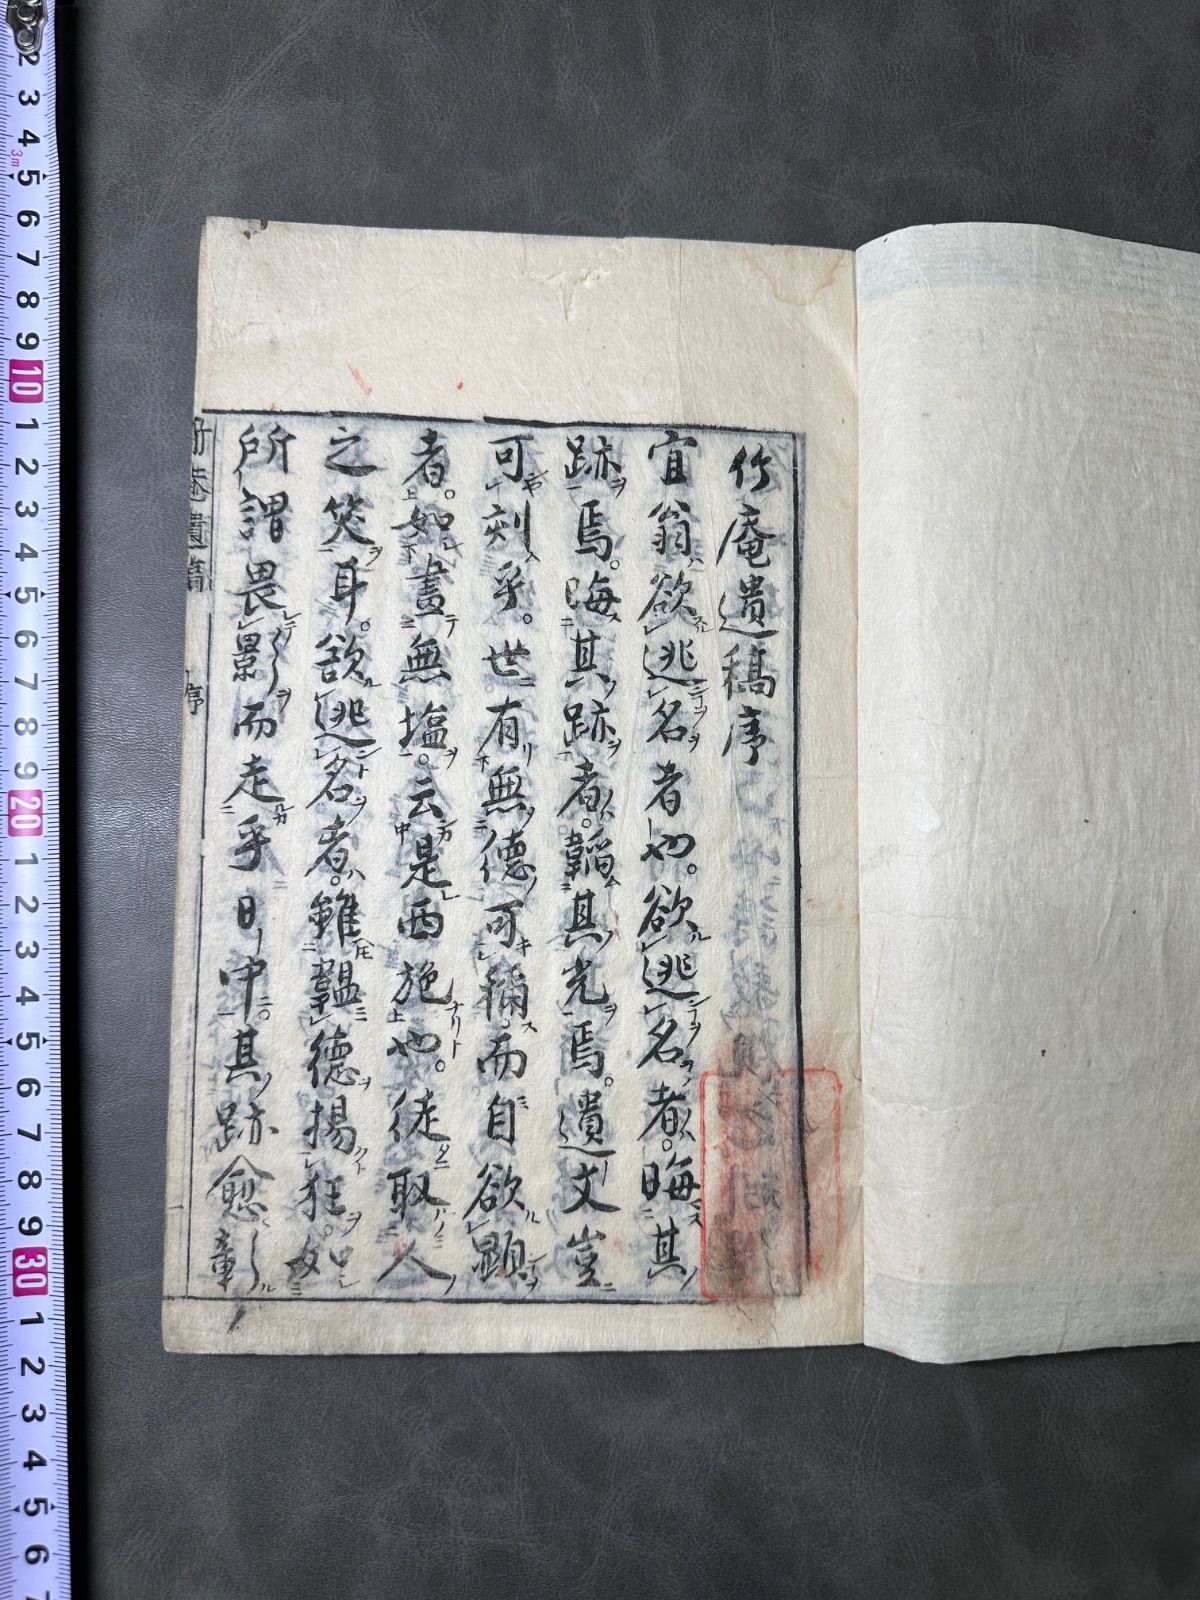 竹庵遺稿序
宜翁欲逃名者也。欲逃名者。晦其
跡焉。晦其跡者。韜其光焉。遺文豈
可刻乎。世有無德可稱。而自欲顕
者。如畫無塩。云是西施也。徒取人
之笑耳。欲逃名者。雖韞德揚狂。
所謂畏影而走乎日中。其跡愈章
竹菴遺稿
序
2 3 4 5 6 7 8 9 10 1 2 3 4 5 6 7 8 9 20 1 2 3 4 5 6 7 8 9 30 1 2 3 4 5 6 7
3m